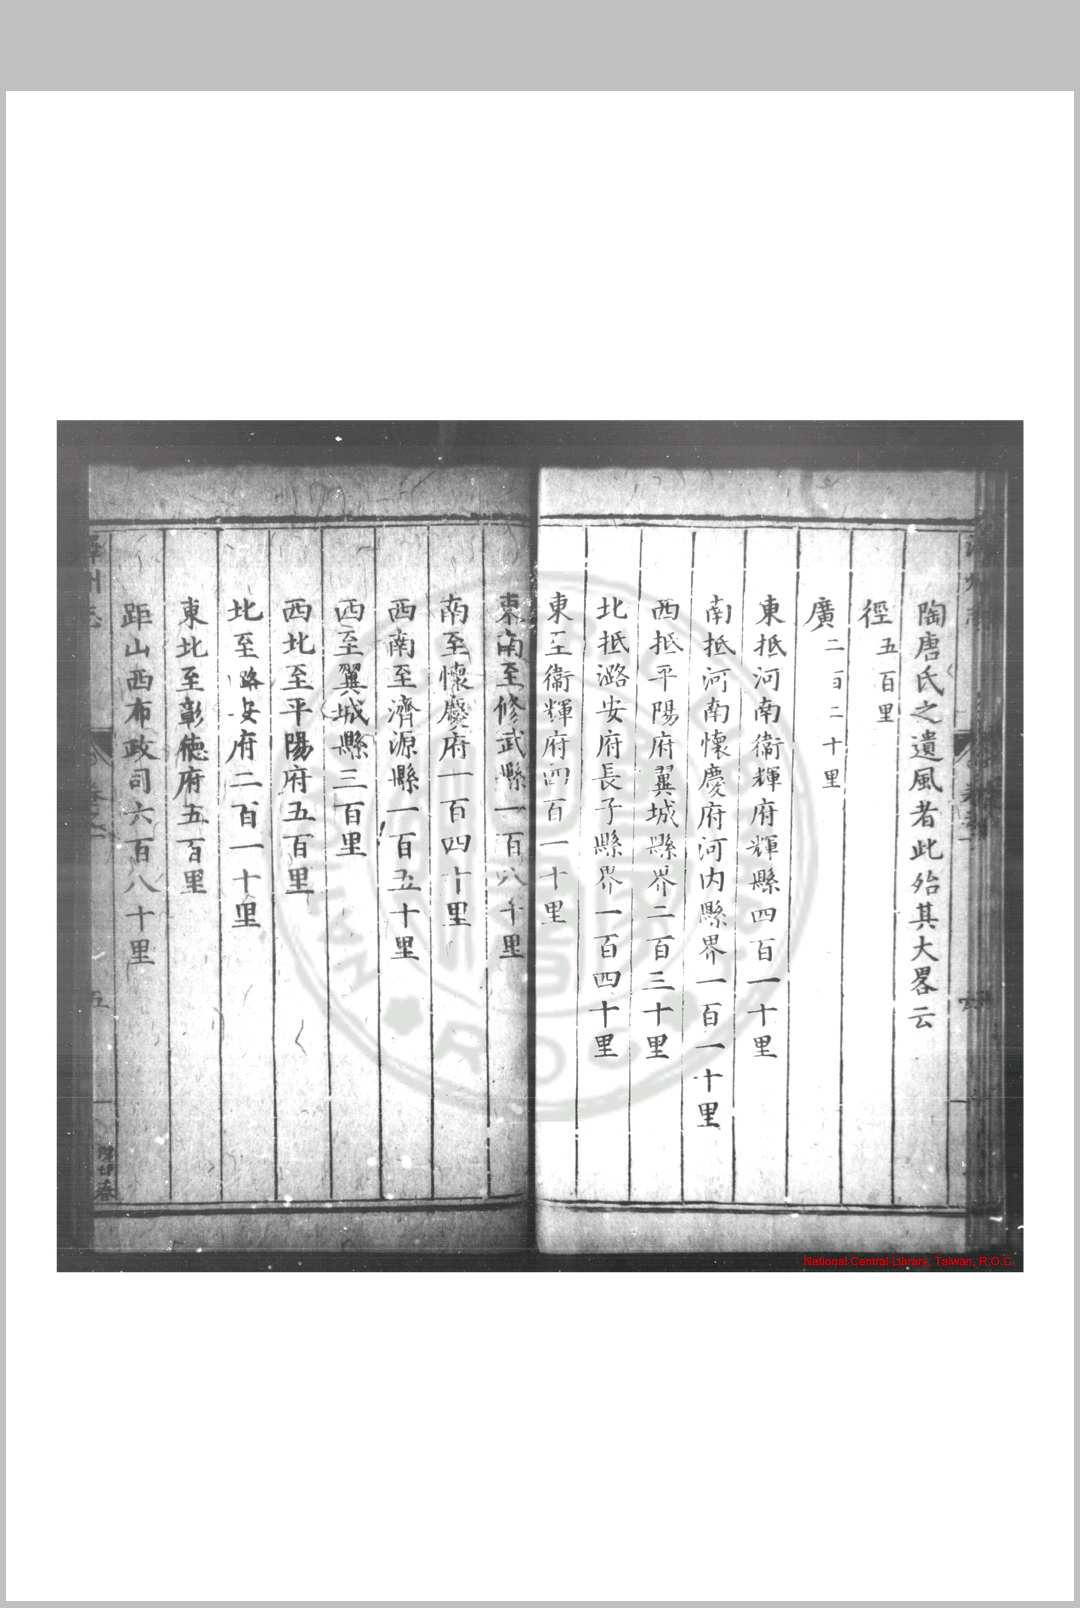 陶唐氏之遺風者此殆其大畧云
徑五百里
廣二百二十里
東抵河南衞輝府輝縣四百一十里
南抵河南懷慶府河内縣界一百一十里
西抵平陽府翼城縣界二百三十里
北抵潞安府長子縣界一百四十里
東至衞輝府四百一十里
東南至修武縣一百八十里
南至懷慶府一百四十里
西南至濟源縣一百五十里
西至翼城縣三百里
西北至平陽府五百里
北至潞安府二百一十里
東北至彰德府五百里
距山西布政司六百八十里
五
National Central Library, Taiwan, R.O.C.